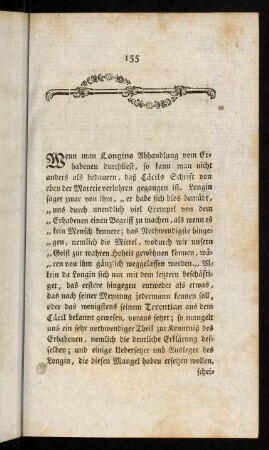 155
Wenn man Longins Abhandlung vom Er-
habenen durchliest, so kann man nicht
anders als bedauern, daß Cäcils Schrift von
eben der Materie verlohren gegangen ist. Longin
saget zwar von ihm, „er habe sich blos bemüht,
„uns durch unendlich viel Exempel von dem
„Erhabenen einen Begriff zu machen, als wenn es
„kein Mensch kennete; das Nothwendigste hinge-
gen, nemlich die Mittel, wodurch wir unsern
„Geist zur wahren Hoheit gewöhnen können, wä-
ren von ihm gänzlich weggelassen worden„. Al-
lein da Longin sich nur mit dem letztern beschäfti-
get, das erstere hingegen entweder als etwas,
das nach seiner Meynung jedermann kennen soll,
oder das wenigstens seinem Terentian aus dem
Cäcil bekannt gewesen, voraus setzet; so mangelt
uns ein sehr nothwendiger Theil zur Kenntniß des
Erhabenen, nemlich die deutliche Erklärung des-
selben; und einige Uebersetzer und Ausleger des
Longin, die diesen Mangel haben ersetzen wollen,
schei-